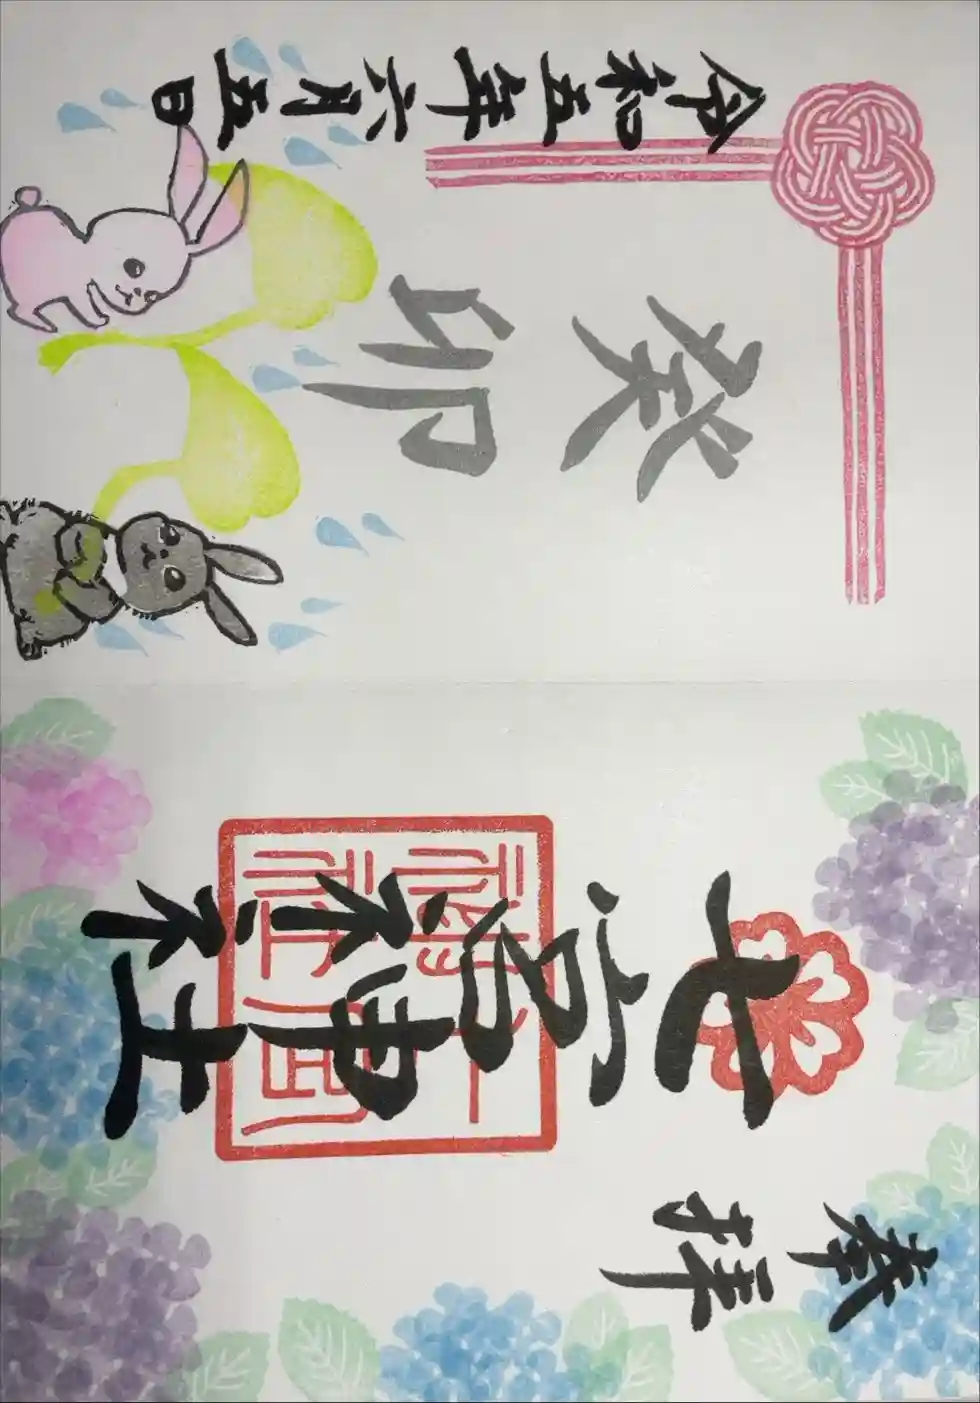 奉拝
七宮神社
癸卯
令和五年六月五日